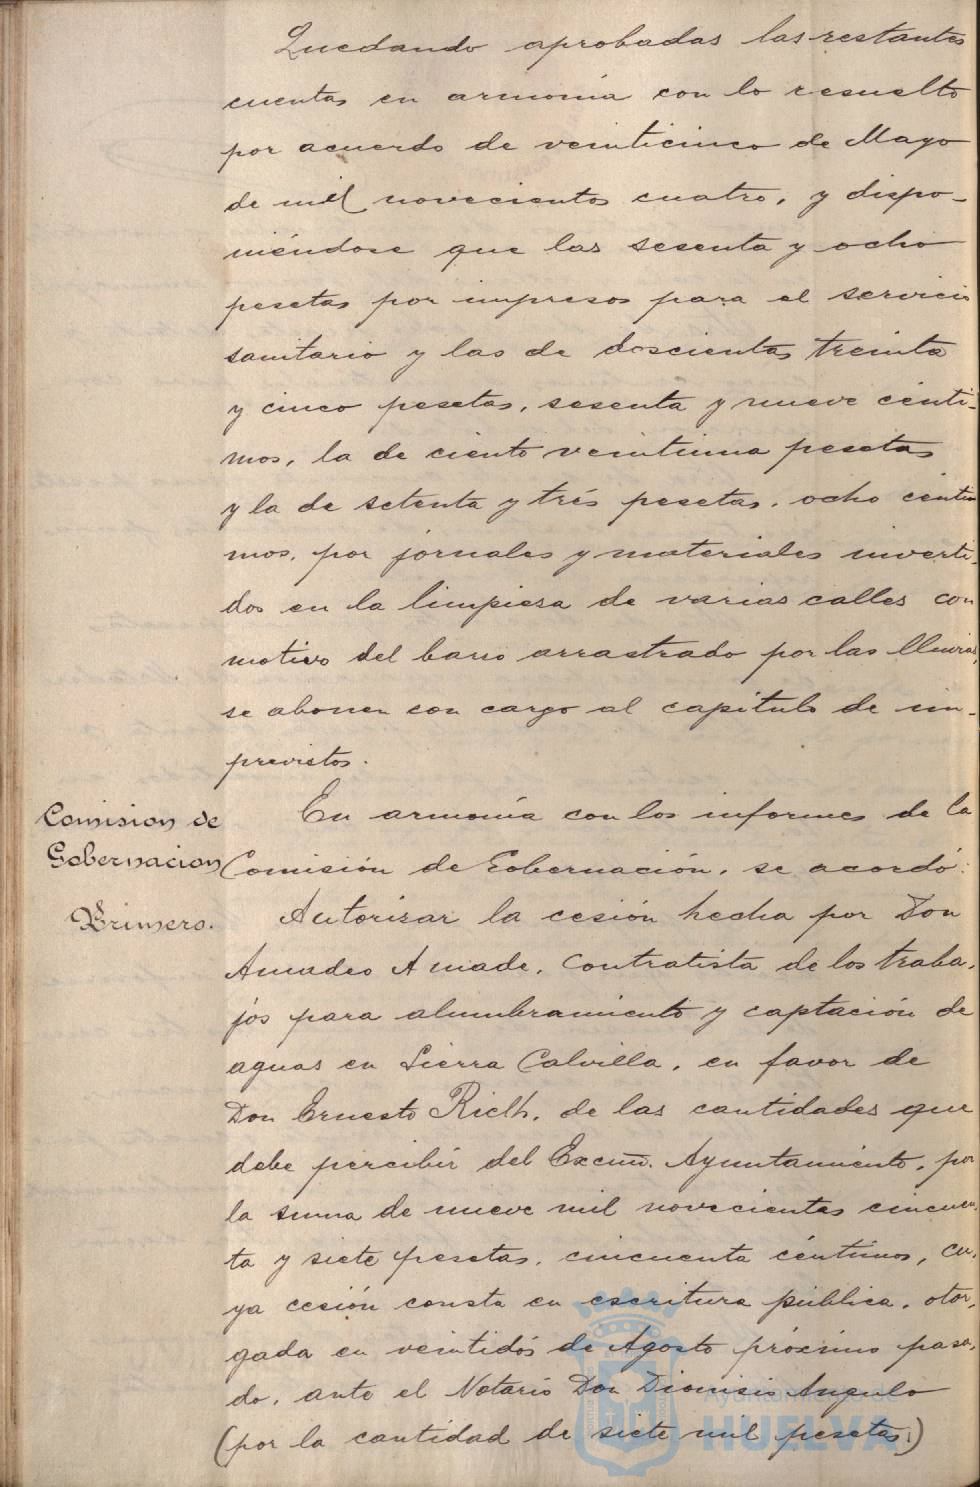 Quedando aprobadas las restantes
cuentas en armonía con lo resuelto
por acuerdo de veinticinco de Mayo
de mil novecientos cuatro, y dispo-
niéndose que las sesenta y ocho
pesetas por impresos para el servicio
sanitario y las de doscientas treinta
y cinco pesetas, sesenta y nueve cénti-
mos, la de ciento veintiuna pesetas
y la de setenta y trés pesetas, ocho cénti
mos, por jornales y materiales inverti-
dos en la limpiesa de varias calles con
motivo del barro arrastrado por las lluvias,
se abonen con cargo al capítulo de im-
previstos.
Comision de
Gobernacion
En armonía con los informes de la
Comisión de Gobernación, se acordó:
Primero.
Autorizar la cesión hecha por Don
Amadeo Amade, Contratista de los traba-
jos para alumbramiento y captación de
aguas en Sierra Calvilla, en favor de
Don Ernesto Rich, de las cantidades que
debe percibir del Excmo. Ayuntamiento, por
la suma de nueve mil novecientas cincuen-
ta y siete pesetas, cincuenta céntimos, cu-
ya cesión consta en escritura pública, otor-
gada en veintidós de Agosto próximo pasa-
do, ante el Notario Don Dionisio Angulo
(por la cantidad de siete mil pesetas.)
Ayuntamiento de
HUELVA